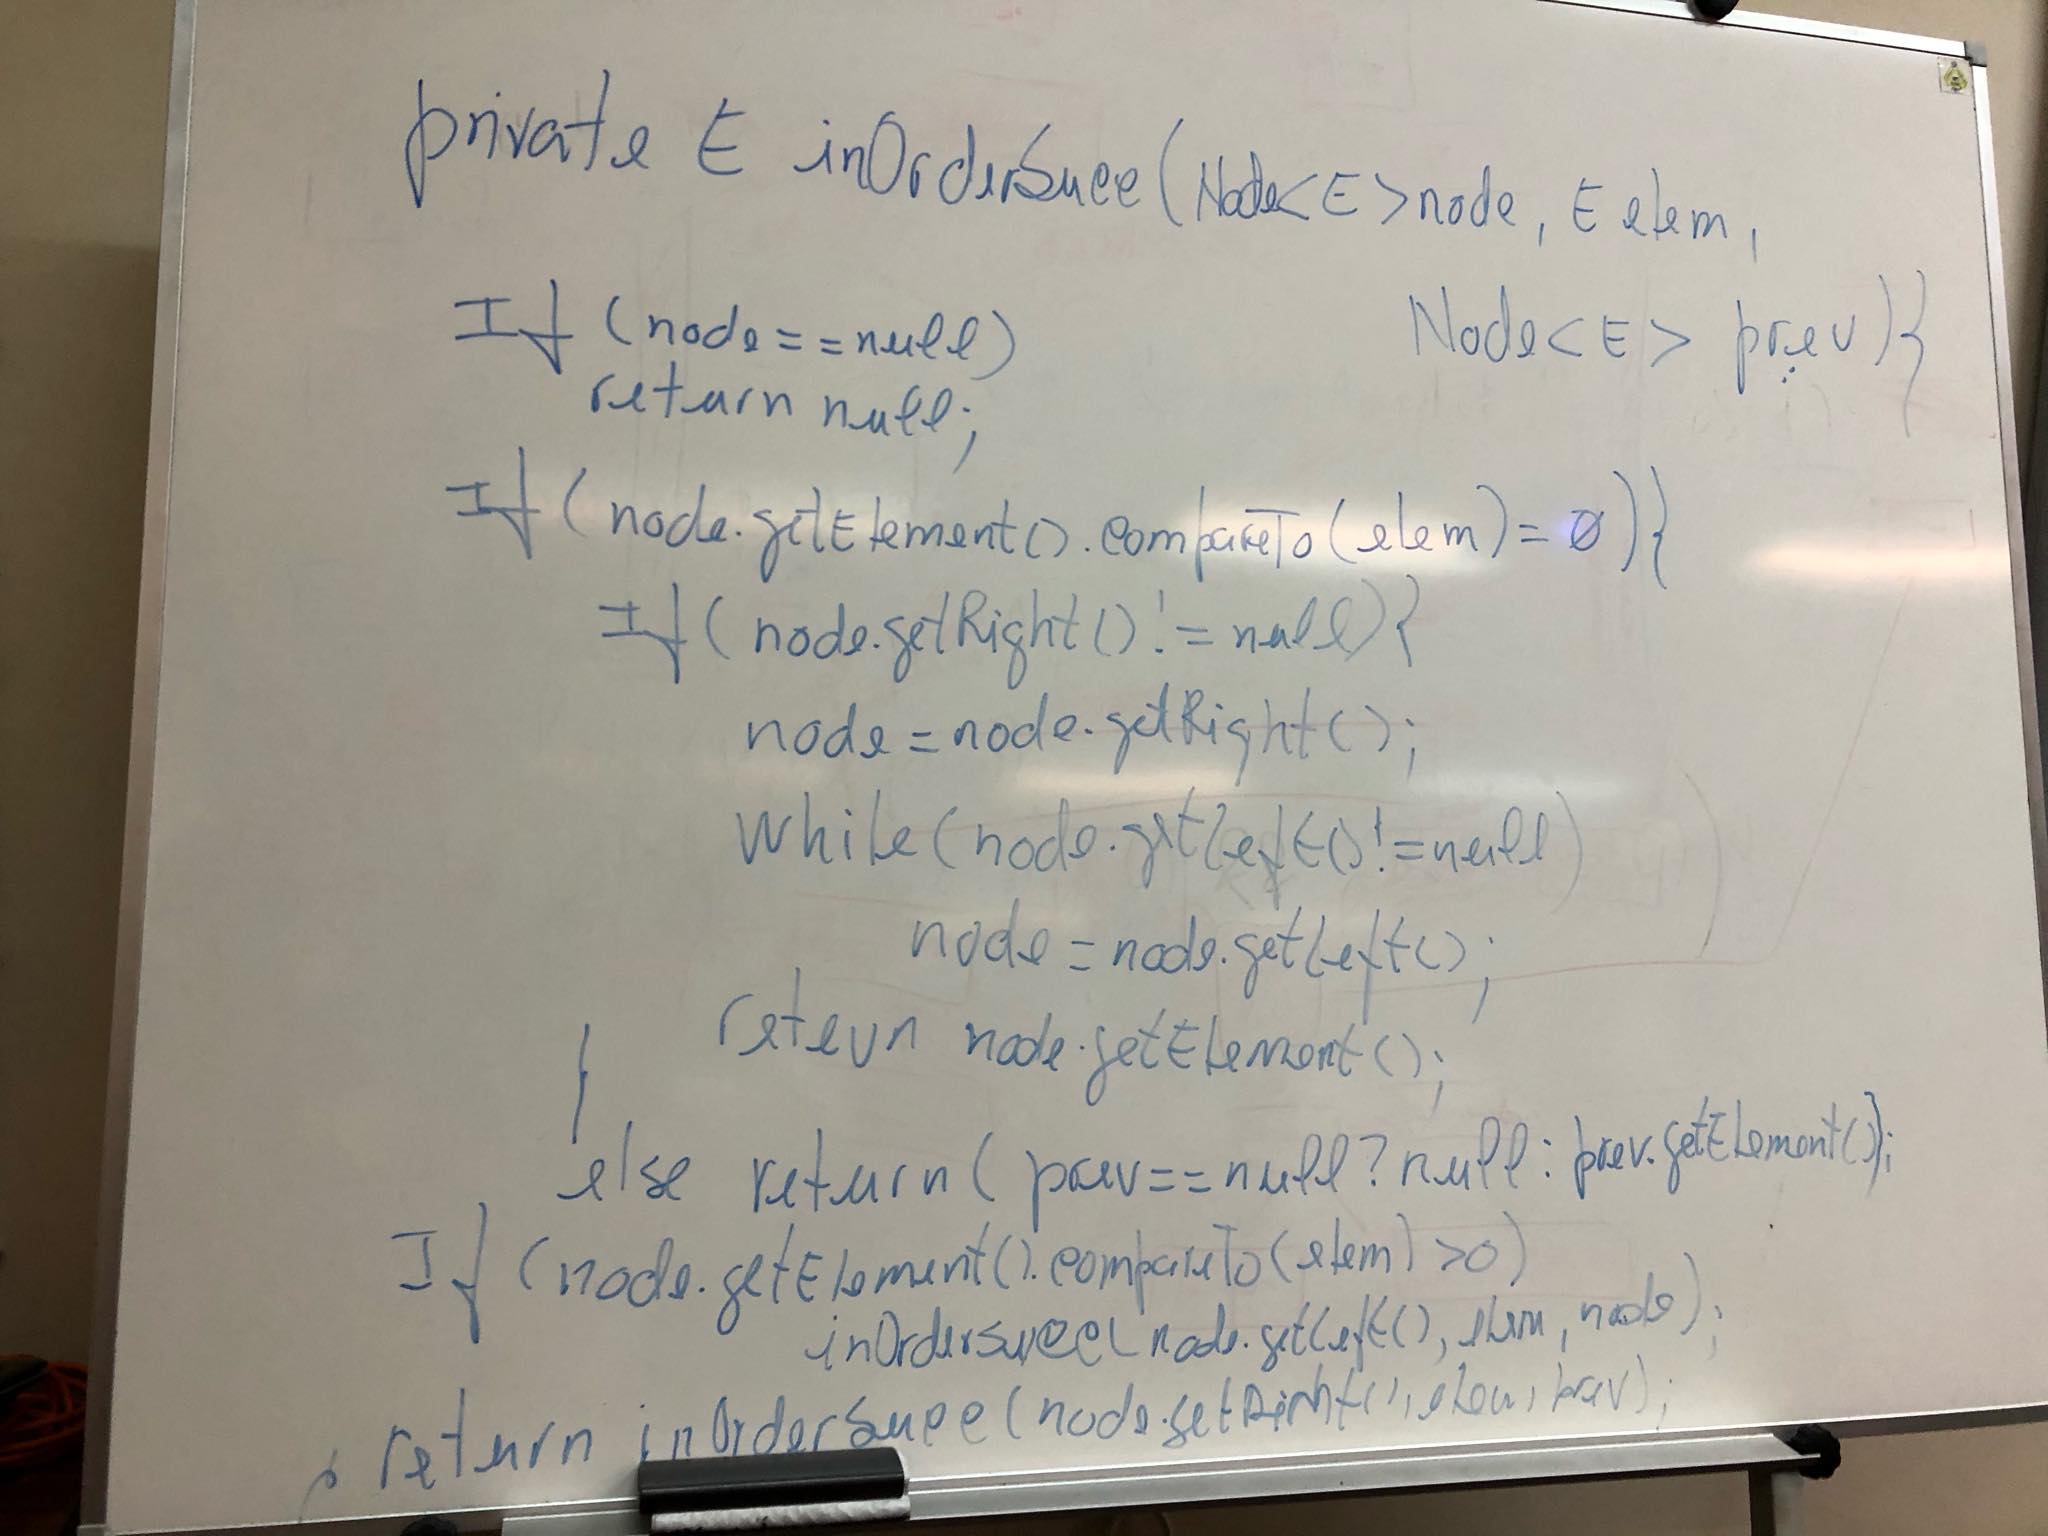 private E inOrderSucc(Node<E>node, E elem,
Node<E> prev){
If (node==null)
return null;
If (node.getElement().compareTo(elem)=0){
If (node.getRight()!=null){
node=node.getRight();
while(node.getLeft()!=null)
node=node.getLeft();
return node.getElement();
}
else return(prev==null?null:prev.getElement());
If (node.getElement().compareTo(elem)>0)
inOrderSucc(node.getLeft(),elem,node);
return inOrderSucc(node.getRight(),elem,prev);